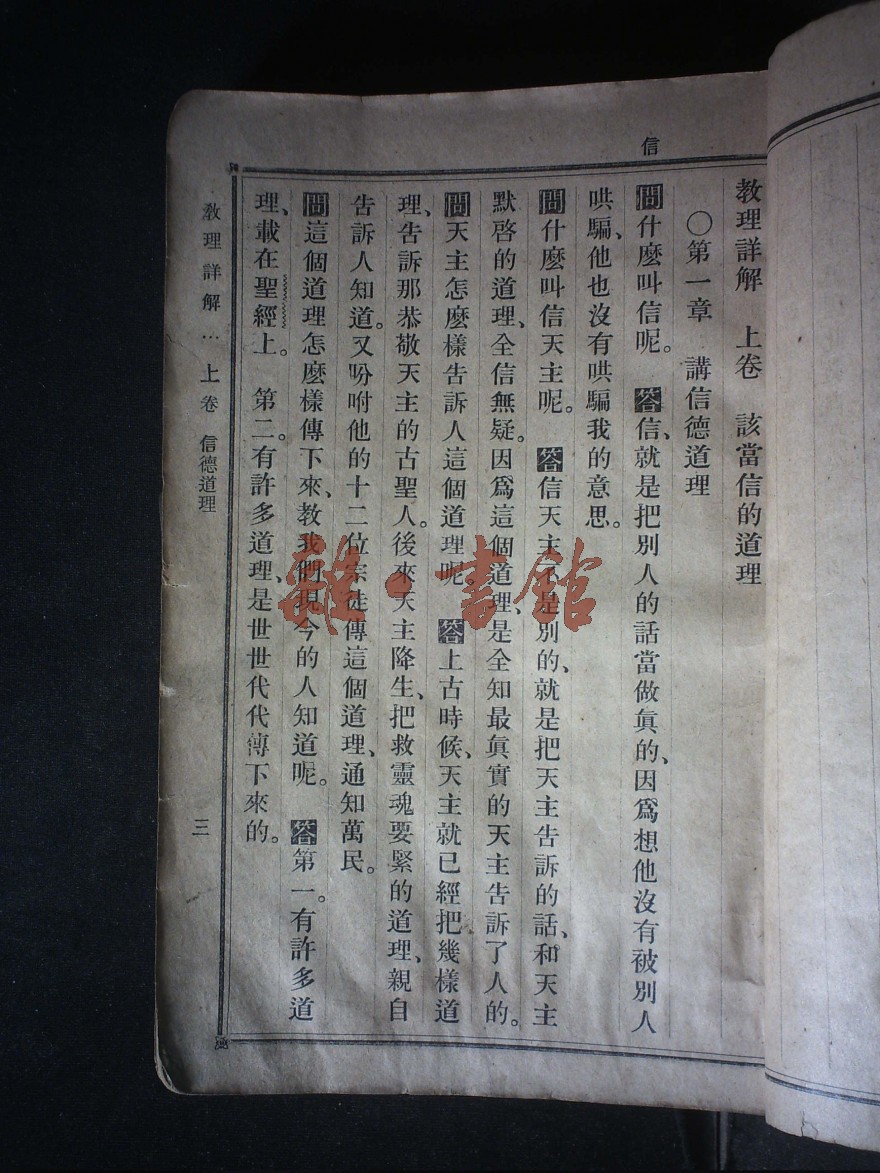 信
教理詳解　上卷　該當信的道理
○第一章　講信德道理
問什麼叫信呢。　答信、就是把別人的話當做眞的、因爲想他沒有被別人
哄騙、他也沒有哄騙我的意思。
問什麼叫信天主呢。　答信天主不是別的、就是把天主告訴的話、和天主
默啓的道理、全信無疑。因爲這個道理、是全知最眞實的天主告訴了人的。
問天主怎麼樣告訴人這個道理呢　答上古時候、天主就已經把幾樣道
理、告訴那恭敬天主的古聖人。後來天主降生、把救靈魂要緊的道理、親自
告訴人知道。又吩咐他的十二位宗徒傳這個道理、通知萬民。
問這個道理怎麼樣傳下來、教我們現今的人知道呢。　答第一。有許多道
理、載在聖經上。　第二。有許多道理、是世世代代傳下來的。
教理詳解…上卷　信德道理
三
雜·書館